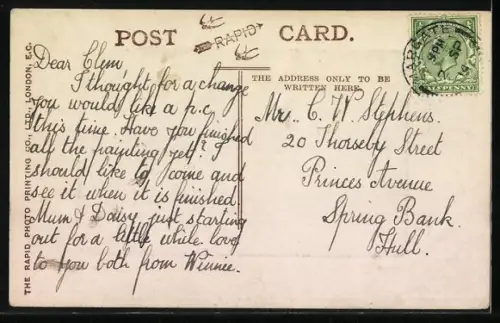 POST CARD.
RAPID
THE ADDRESS ONLY TO BE
WRITTEN HERE
Dear Clem
I thought for a change
you would like a p.c.
this time. Have you finished
all the painting yet? I
should like to come and
see it when it is finished.
Mum & Daisy just starting
out for a little while love
to you both from Winnie.
Mr. C. W. Stephens.
20 Thoresby Street
Princes Avenue
Spring Bank.
Hull.
THE RAPID PHOTO PRINTING CO., LTD., LONDON, E.C.